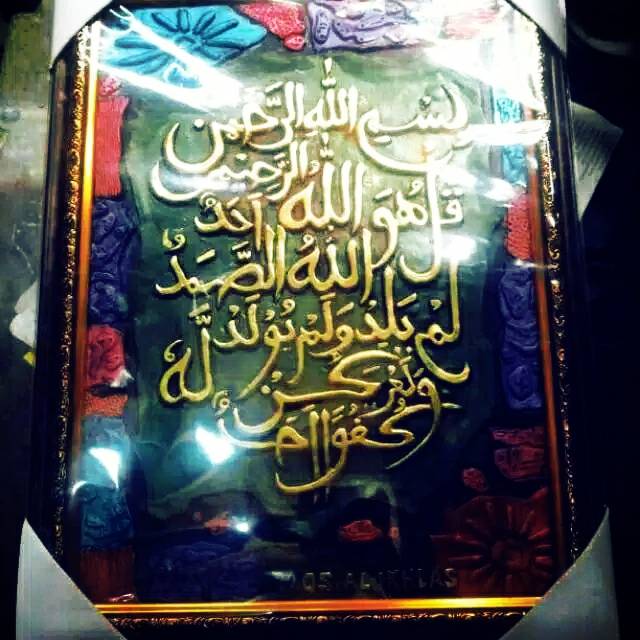 بِسْمِ اللهِ الرَّحْمٰنِ
الرَّحِيْمِ
قُلْ هُوَ اللهُ اَحَدٌ
اَللهُ الصَّمَدُ
لَمْ يَلِدْ وَلَمْ يُوْلَدْ
وَلَمْ يَكُنْ لَّهُ
كُفُوًا اَحَدٌ
QS AL IKHLAS